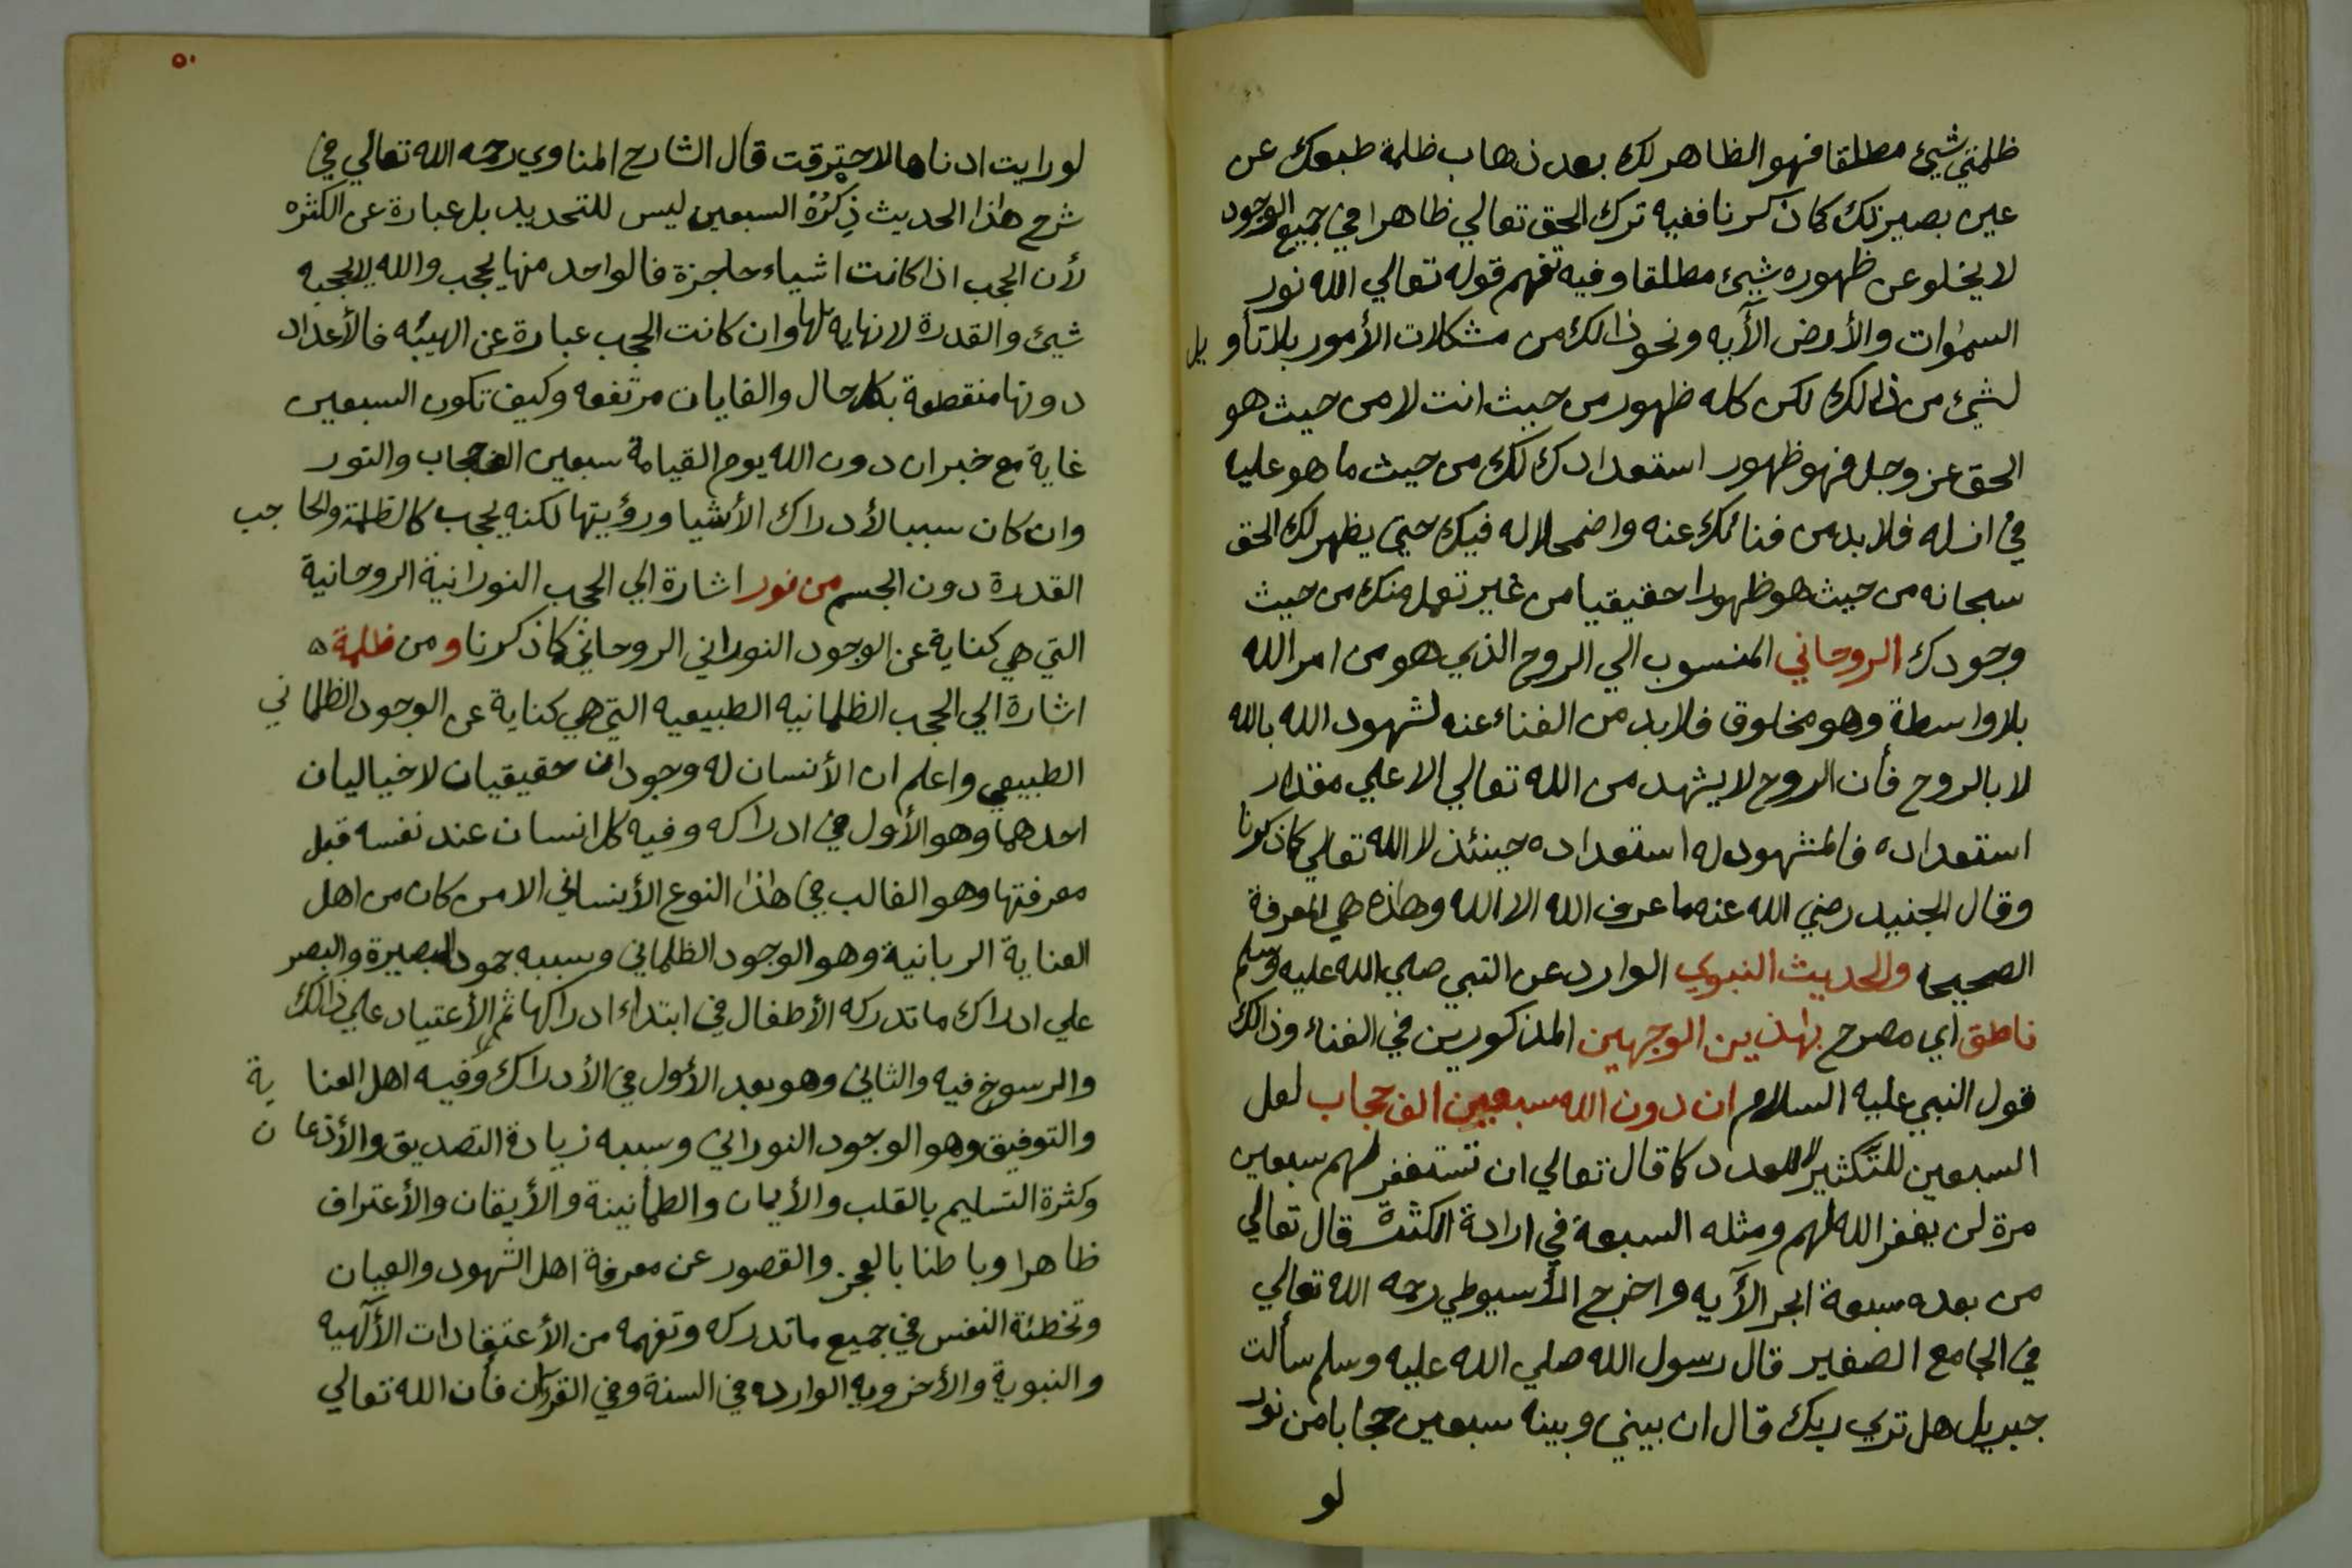 ظلمتي شيئ مطلقا فهو الظاهر لك بعد ذهاب ظلمة طبعك عن
عين بصيرتك كما ذكرنا ففيه ترك الحق تعالي ظاهرا في جميع الوجود
لا يخلو عن ظهوره شيئ مطلقا وفيه تفهم قوله تعالي الله نور
السموات والأرض الأيه ونحو ذالك من مشكلات الأمور بلا تأويل
لشيء من ذالك لكن كله ظهور من حيث انت لا من حيث هو
الحق عز وجل فهو ظهور استعدادك لك من حيث ما هو عليه
في ازله فلا بد من فنائك عنه واضمحلاله فيك حتي يظهر لك الحق
سبحانه من حيث هو ظهورا حقيقيا من غير تعمل منك من حيث
وجودك الروحاني المنسوب الي الروح الذي هو من امر الله
بلا واسطة وهو مخلوق فلا بد من الفناء عنه لشهود الله بالله
لا بالروح فأن الروح لا يشهد من الله تعالي الا علي مقدار
استعداده فالمشهود له استعداده حينئذ لا الله تعالي كما ذكرنا
وقال الجنيد رضي الله عنه ما عرف الله الا الله وهاذه هي المعرفة
الصحيحه والحديث النبوي الوارد عن النبي صلي الله عليه وسلم
ناطق اي مصرح بهاذين الوجهين المذكورين في الفناء وذالك
قول النبي عليه السلام ان دون الله سبعين الف حجاب لعل
السبعين للتكثير لا للعدد كما قال تعالي ان تستغفر لهم سبعين
مرة لن يغفر الله لهم ومثله السبعة في ارادة الكثرة قال تعالي
من بعده سبعة ابحر الأيه واخرج الأسيوطي رحمه الله تعالي
في الجامع الصغير قال رسول الله صلي الله عليه وسلم سألت
جبريل هل تري ربك قال ان بيني وبينه سبعين حجابا من نور
لو
٥٠
لو رايت ادناها لاحترقت قال الشارح المناوي رحمه الله تعالي في
شرح هاذا الحديث ذكره السبعين ليس للتحديد بل عبارة عن الكثره
لأن الحجب اذا كانت اشياء حاجزة فالواحد منها يحجب والله لا يحجبه
شيئ والقدرة لا نهايه لها وان كانت الحجب عبارة عن الهيبه فالأعداد
دونها منقطعة بكل حال والغايات مرتفعه وكيف تكون السبعين
غاية مع خبر ان دون الله يوم القيامة سبعين الف حجاب والنور
وان كان سببا لأدراك الأشيا ورؤيتها لكنه يحجب كالظلمة والحاجب
القدرة دون الجسم من نور اشارة الي الحجب النورانية الروحانية
التي هي كناية عن الوجود النوراني الروحاني كما ذكرنا ومن ظلمة ه
اشارة الي الحجب الظلمانيه الطبيعيه التي هي كناية عن الوجود الظلماني
الطبيعي واعلم ان الأنسان له وجودان حقيقيان لا خياليان
احدهما وهو الأول في ادراكه وفيه كل انسان عند نفسه قبل
معرفتها وهو الغالب في هاذا النوع الأنساني الا من كان من اهل
العناية الربانية وهو الوجود الظلماني وسببه جمود البصيرة والبصر
علي ادراك ما تدركه الأطفال في ابتداء ادراكها ثم الأعتياد علي ذالك
والرسوخ فيه والثاني وهو بعد الأول في الأدراك وفيه اهل العناية
والتوفيق وهو الوجود النوراني وسببه زيادة التصديق والأذعان
وكثرة التسليم بالقلب والأيمان والطمأنينة والأيقان والأعتراف
ظاهرا وباطنا بالعجز والقصور عن معرفة اهل الشهود والعيان
وتخطئة النفس في جميع ما تدركه وتفهمه من الأعتقادات الألهيه
والنبوية والأخرويه الوارده في السنة وفي القرأن فأن الله تعالي